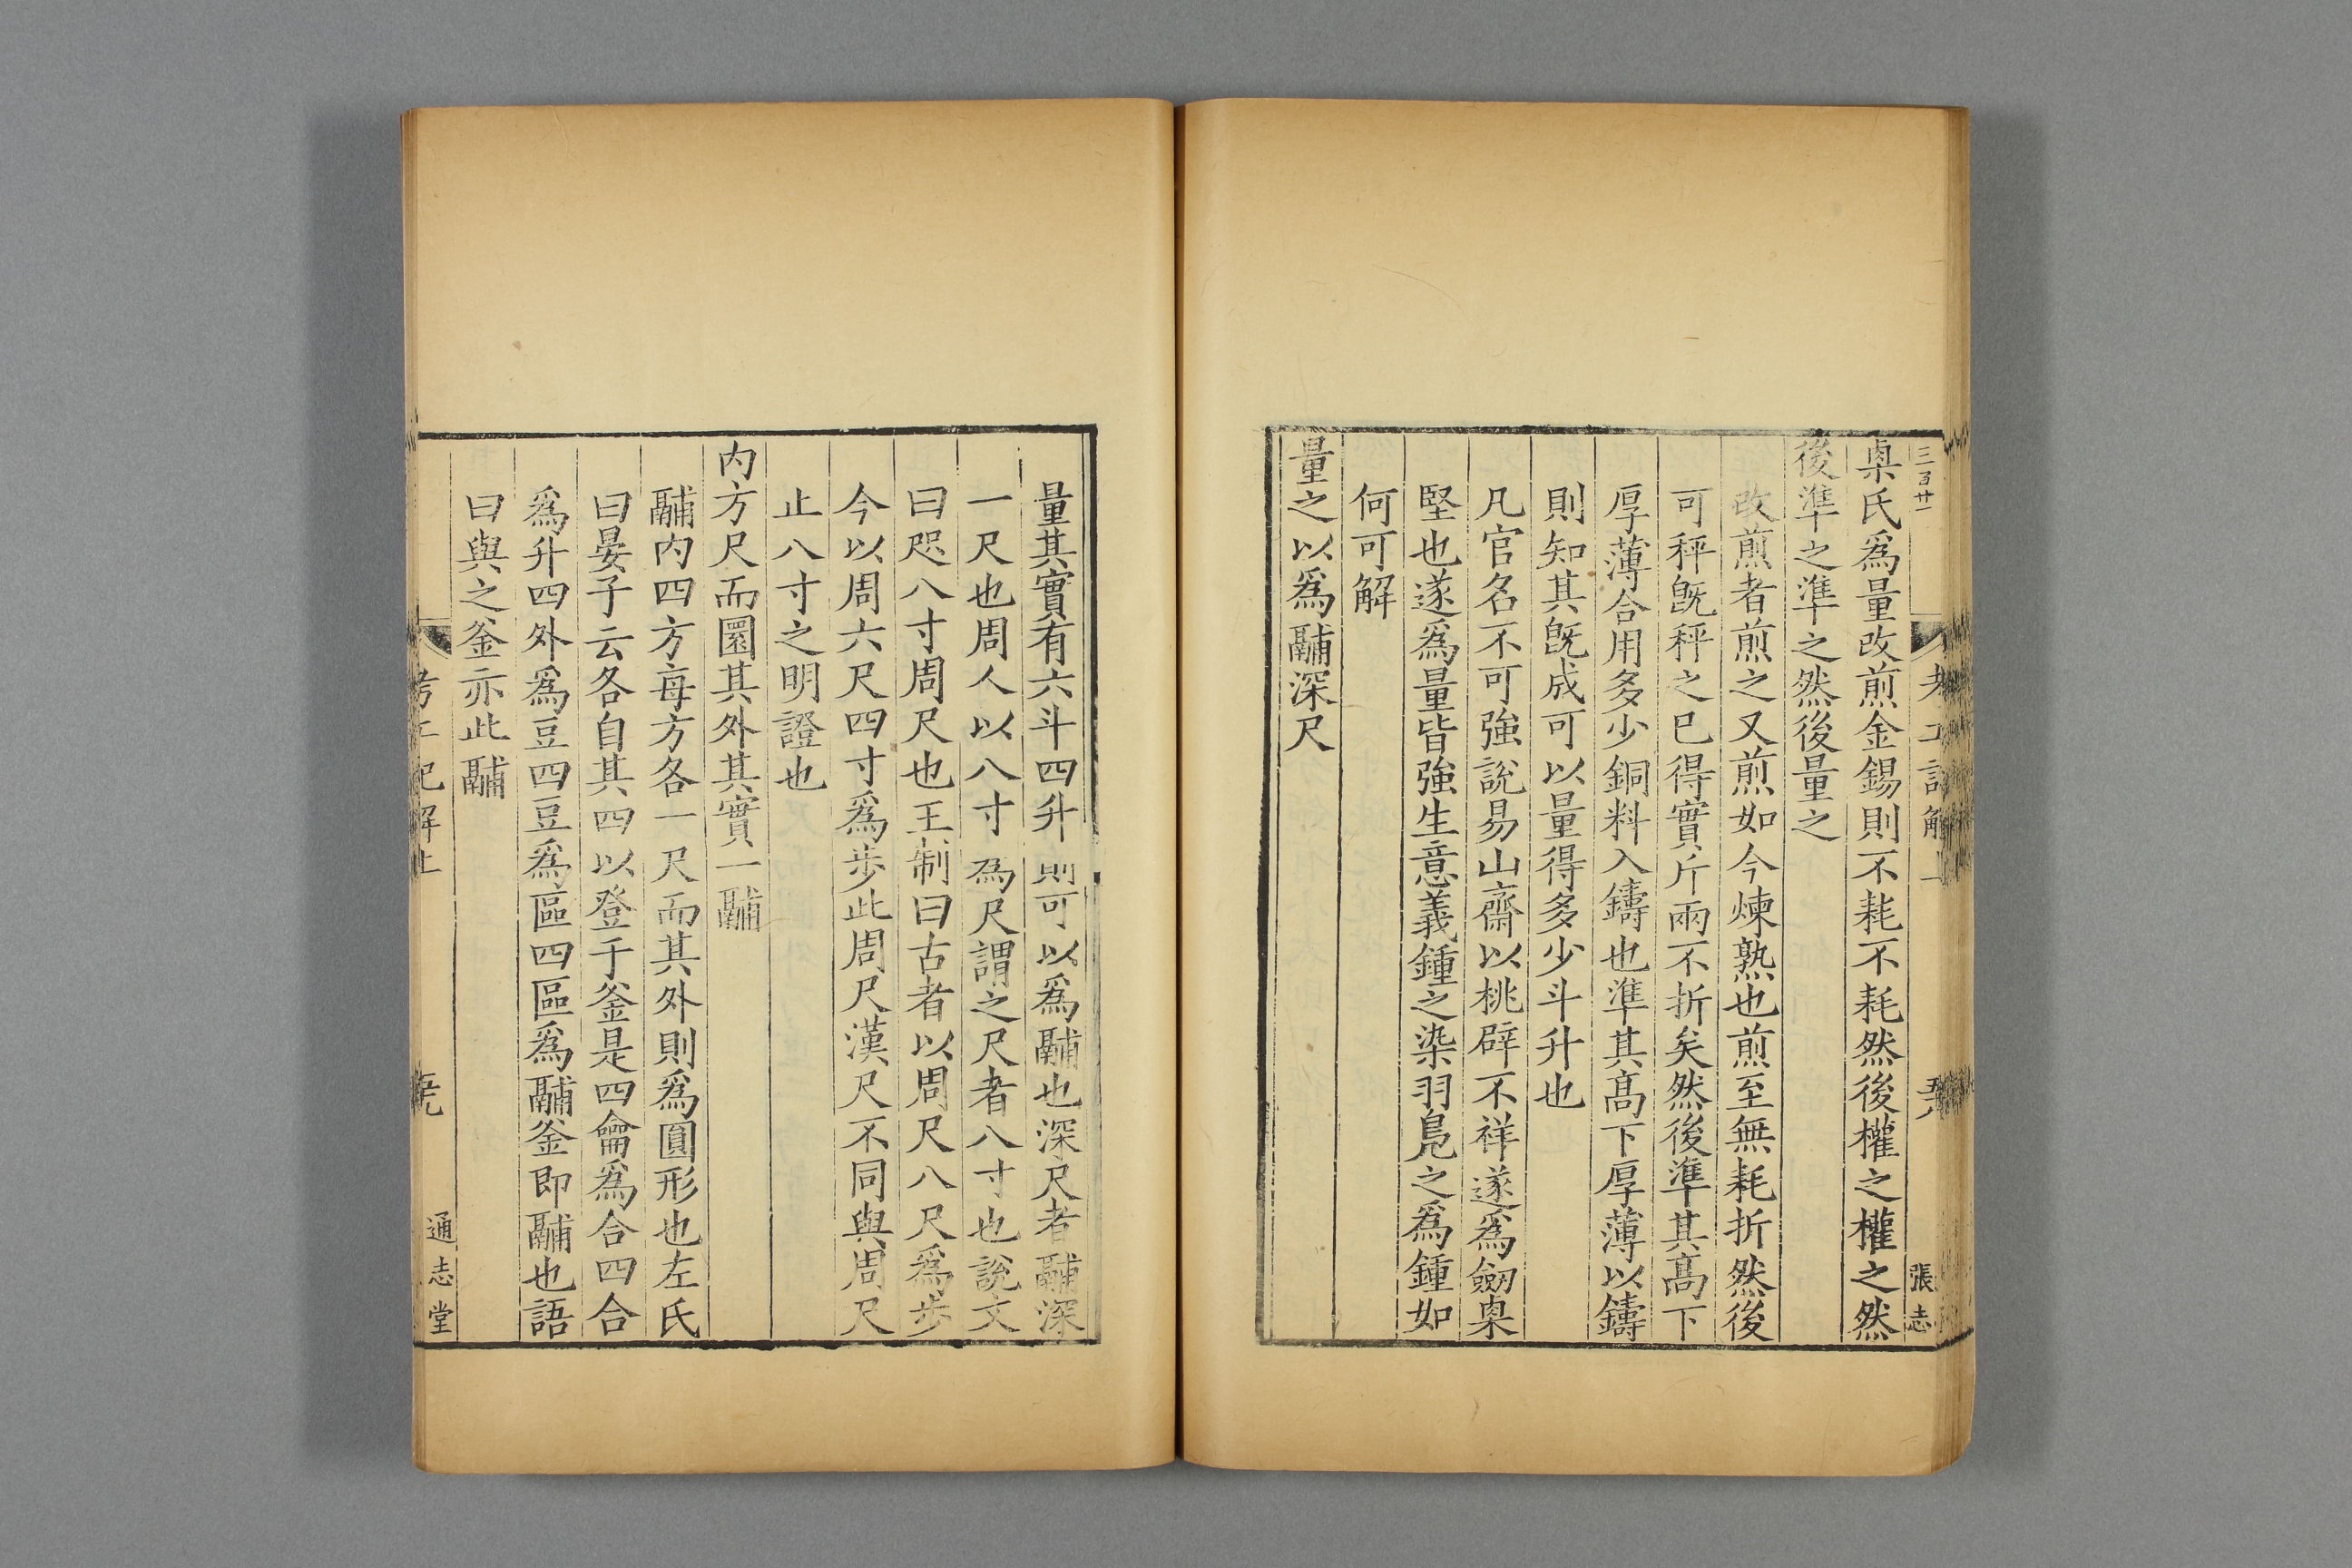 三百廿一
考工記解上
張志
㮚氏爲量改煎金錫則不耗不耗然後權之權之然
後準之準之然後量之
改煎者煎之又煎如今煉熟也煎至無耗折然後
可秤旣秤之已得實斤兩不折矣然後準其髙下
厚薄合用多少銅料入鑄也準其髙下厚薄以鑄
則知其旣成可以量得多少斗升也
凡官名不可強說易山齋以桃辟不祥遂爲劒㮚
堅也遂爲量皆強生意義鍾之染羽鳬之爲鍾如
何可解
量之以爲鬴深尺
量其實有六斗四升則可以爲鬴也深尺者鬴深
一尺也周人以八寸爲尺謂之尺者八寸也說文
曰咫八寸周尺也王制曰古者以周尺八尺爲步
今以周六尺四寸爲步此周尺漢尺不同與周尺
止八寸之明證也
内方尺而圜其外其實一鬴
鬴内四方每方各一尺而其外則爲圓形也左氏
曰晏子云各自其四以登于釜是四龠爲合四合
爲升四外爲豆四豆爲區四區爲鬴釜即鬴也語
曰與之釜亦此鬴
考工記解上
通志堂